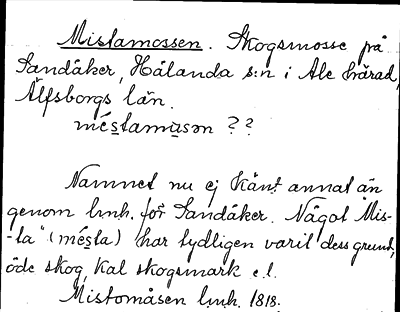 Mistamossen. Skogsmosse på
Sandåker, Hålanda s:n i Ale härad,
Älfsborgs län.
méstamusən ??
Namnet nu ej känt annat än
genom lmh. för Sandåker. Något "Mis-
-ta" (mésta) har tydligen varit dess grund,
öde skog, kal skogsmark e.l.
Mistomåsen lmh. 1818.